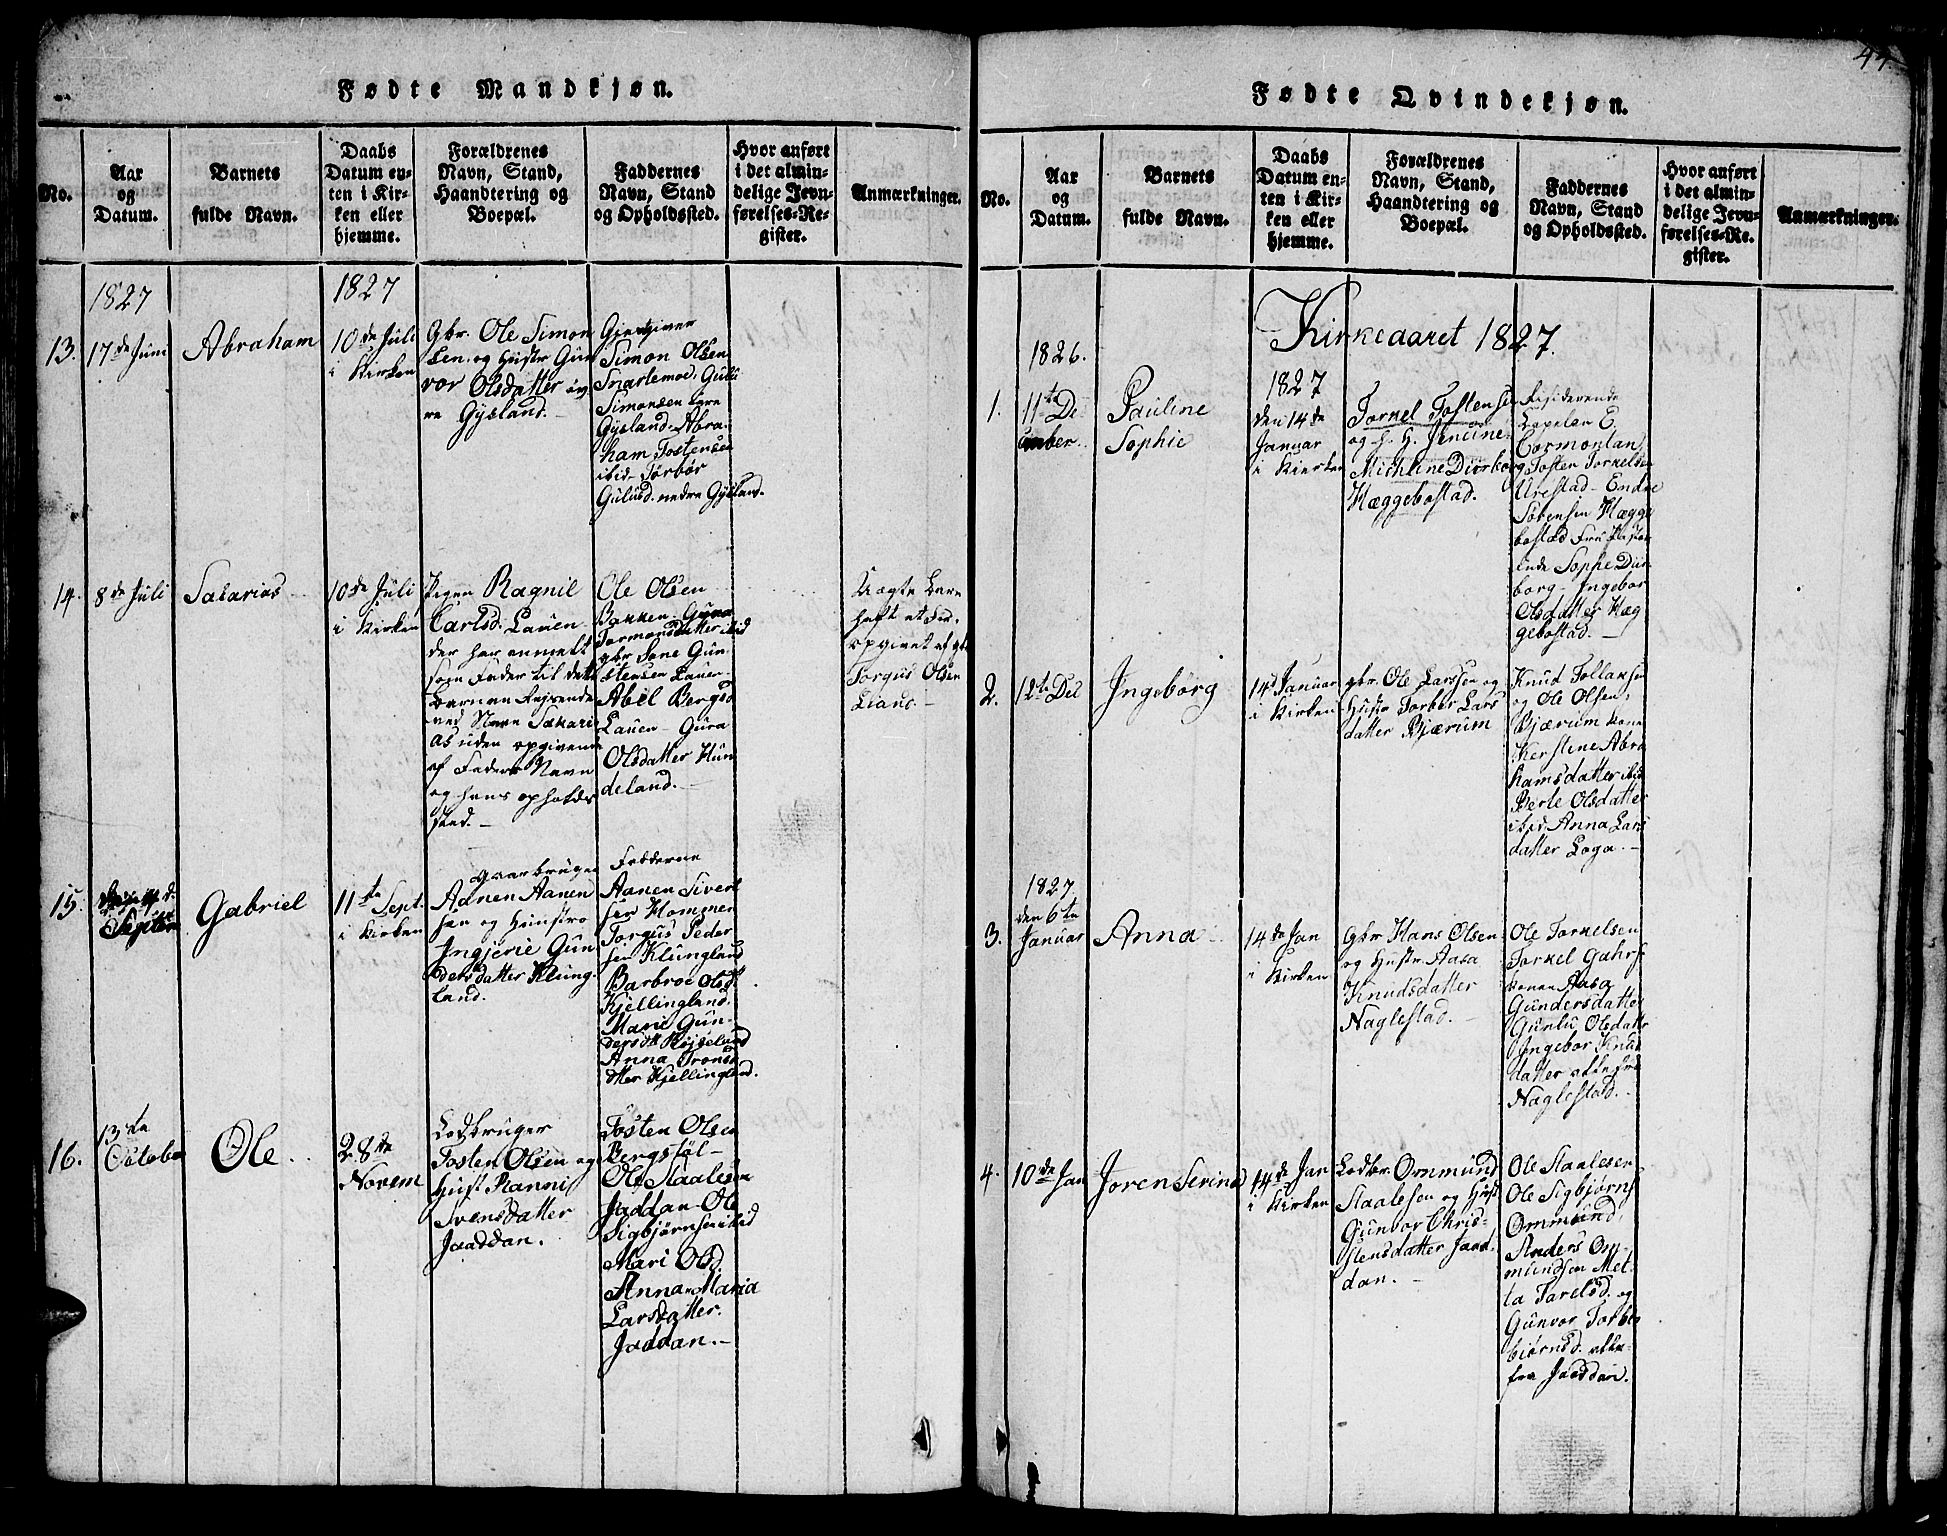 44
Fødte Mandkjøn.
No.
Aar
og
Datum.
Barnets
fulde Navn.
Daabs
Datum en-
ten i Kir-
ken eller
hjemme.
Forældrenes
Navn, Stand,
Haandtering og
Boepæl.
Faddernes
Navn, Stand
og Opholdssted.
Hvor anført
i det almin-
delige Jevn-
førelses-Re-
gister.
Anmærkninger.
1827
1827
13.
17de Juni
Abraham
10de Juli
i Kirken
Gbr. Ole Simon
sen og Hustr Gun
vor Olsdatter øv
re Gysland.
Gjestgiver
Simon Olsen
Snartemoe, Gulu
Simonsen øvre
Gysland, Abra-
ham Tostensen
ibid- Torbør
Gulusd. nedre Gysland.
14.
8de Juli
Sakarias
10de Juli
i Kirken
Pigen Ragnil
Carlsd. Lauen
der har anmelt
som Fader til dette
Barn en Reisende
ved Navn Sakari
as uden opgivende
af Faders Navn
og hans opholds
sted.-
Ole Olsen
Bakken- Guna
Tormondsdatter ibid
gbr Sone Gun
stensen Lauen-
Abel Bergsd
Lauen- Gura
Olsdatter Hun
deland.-
Uægte Leie
opgivet af
Torgus Olsen
Liand.-
15.
Septem
Gabriel
11te Sept.
i Kirken
Gaarbruger
Aanen Aanen
sen og Hustro
Ingjerie Gun
dersdatter Klung-
land.
Fadderne
Aanen Sivert
sen Hommen
Torgus Peder
sen Klungland
Barbroe Olsd
Kjellingland,
Marie Gun-
dersdt Røiseland
Anna Tronsd
dtter Kjellingland.
16.
13de
Octobe
Ole
28de
Novem
Lodbruger
Tosten Olsen og
Hust Ranni
Svensdatter
Jaaddan.
Tosten Olsen
Bergsføl-
Ole Staalesen
Jaddan- Ole
Sigbjørnsen ibid
Mari Olsd.
Anna Maria
Larsdatter.
Jaddan.-
Fødte Qvindekjøn.
No.
Aar
og
Datum.
Barnets
fulde Navn.
Daabs
Datum en-
ten i Kir-
ken eller
hjemme.
Forældrenes
Navn, Stand,
Haandtering og
Boepæl.
Faddernes
Navn, Stand
og Opholdssted.
Hvor anført
i det almin-
delige Jevn-
førelses-Re-
gister.
Anmærkninger.
Kirkeaaret 1827.
1826.
1.
11te De
cember.
Pauline
Sophie
1827
den 14de
Januar
i Kirken
Torkel Tostensen
og h. H. Jensine
Michline Diirborg
Hæggebostad.
Residerende
Capelan E.
Cormontan,
Tosten Torkelsen
Urestad- Endre
Sørensen Hægge
bostad
Sophe Diir
borg- Ingebor
Olsdatter Hæg
gebostad.-
2.
12te Des
Ingebørg
14d Januar
i Kirken
gbr. Ole Larssen og
Hustr Torbør Lars
datter Bjærum
Knud Tollaksen
og Ole Olsen,
Bjærum Kone
Kerstine Abra
hamsdatter ibid
Berte Olsdatter
ibid Anna Lars
datter Loga.-
1827.
3.
den 6te
Januar
Anna
14de Jan
i Kirken
Gbr Hans Olsen
og Hustr Aasa
Knudsdatter
Naglestad.-
Ole Torkelsen
Torkel Gahrs
konen Aasa
Gundersdatter
Gunlu Olsdatter
Ingebor Knud
datter alle fra
Naglestad.-
4.
10de Jan
Joren Serina
14de Jan
i Kirken
Lodbr. Ommund
Staalesen og Hust
Gunvor Chris-
stensdatter Jaad-
dan.-
Ole Staalesen
Ole Sigbjørns
Ommund,
Anders Om-
mundsen Met-
ta Tarelsd. og
Gunvor Torbs
biørnsd. alle
fra Jaaddan.